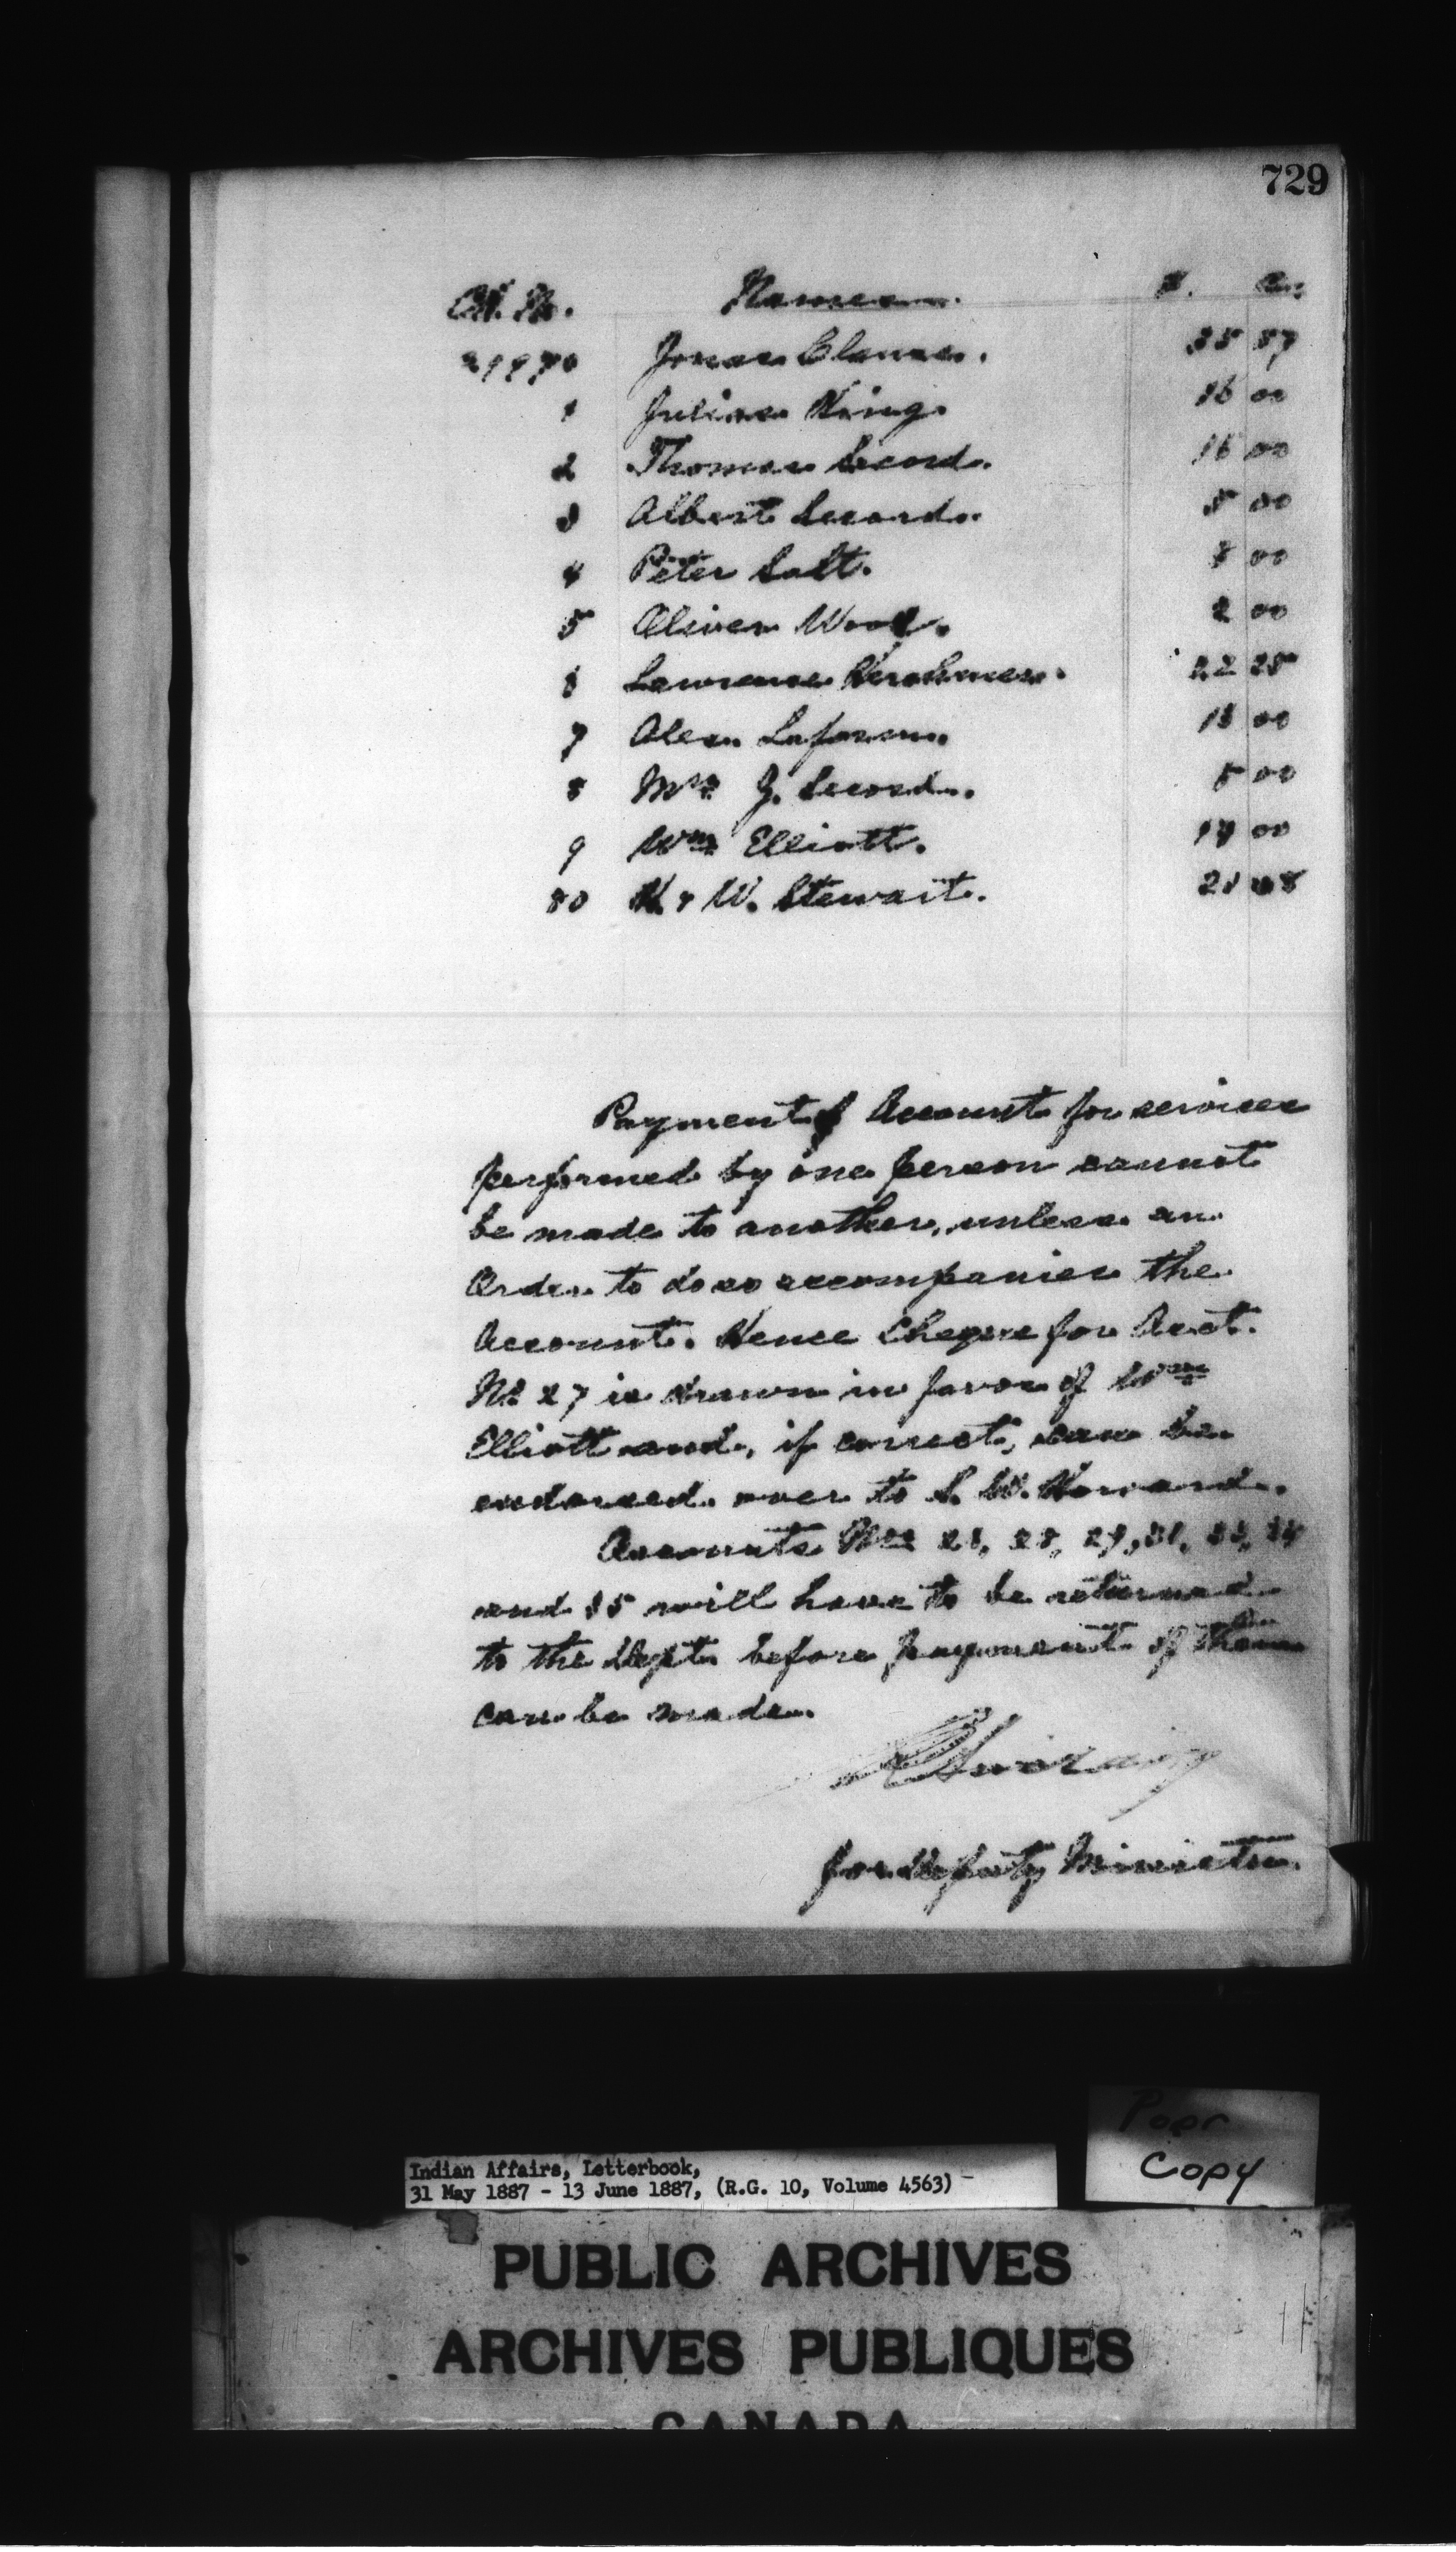 729
Ck. No. Names. $. Cts.
Jonas Claus. 57
1 Julius King. 16 00
2 Thomas Secord. 16 00
3 Albert Secord. 00
4 Peter Salt. 8 00
5 Oliver Wood. 2 00
Lawrence 22
7 Alex. Laform. 00
8 Mrs J. Secord. 00
9 Wm Elliott. 00
80 & W. Stewart.
Payment of Account for services
performed by one person cannot
be made to another, unless an
Order to do so accompanies the
Account. Hence Cheque for Acct.
No 27 is drawn in favor of Wm
Elliott and, if correct, can be
endorsed over to W. Howard.
Accounts Nos
and 35 will have to be returned
to the Dept. before payment of them
can be made.
for Deputy Minister.
Poor
Copy
Indian Affairs, Letterbook,
31 May 1887 - 13 June 1887, (R.G. 10, Volume 4563)
PUBLIC ARCHIVES
ARCHIVES PUBLIQUES
CANADA